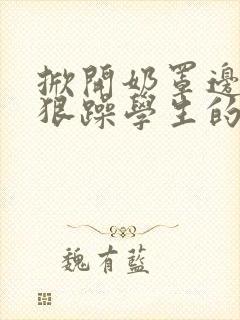 掀開奶罩邊
狠躁學生的
魏有藍